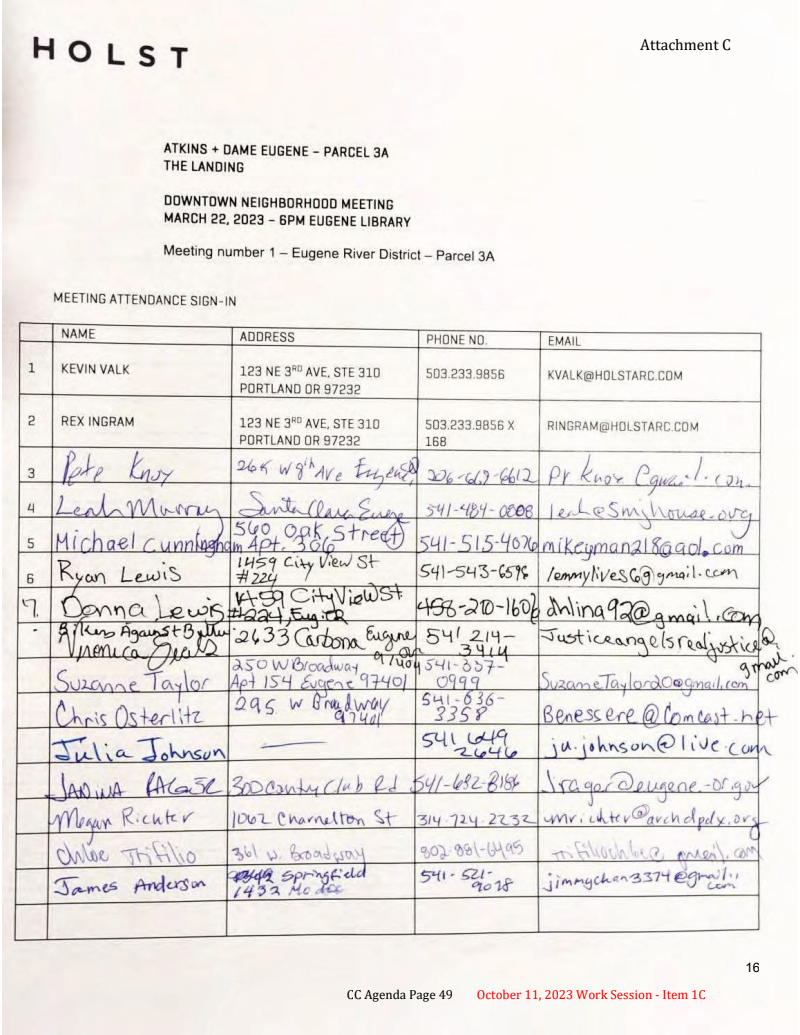 HOLST
Attachment C
ATKINS + DAME EUGENE – PARCEL 3A
THE LANDING
DOWNTOWN NEIGHBORHOOD MEETING
MARCH 22, 2023 – 6PM EUGENE LIBRARY
Meeting number 1 – Eugene River District – Parcel 3A
MEETING ATTENDANCE SIGN-IN
NAME ADDRESS PHONE NO. EMAIL
1 KEVIN VALK 123 NE 3RD AVE, STE 310 503.233.9856 KVALK@HOLSTARC.COM
PORTLAND OR 97232
2 REX INGRAM 123 NE 3RD AVE, STE 310 503.233.9856 X RINGRAM@HOLSTARC.COM
PORTLAND OR 97232 168
3 Pete Knox W 8th Ave 206-669-6612
4 Leah Murray Santa Clara Eugene 541-484-0808 leah@smjhouse.org
5 Michael Cunningham 560 Oak Street 541-515-4076 mikeyman218@aol.com
Apt. 306
6 Ryan Lewis 1459 City View St 541-543-6598 lemmylives6@gmail.com
#224
7. Donna Lewis 1459 City View St dhlina92@gmail.com
#224, Eug.
Bikers Against 2633 Eugene 541 214- Justiceangelsrealjustice@
Veronica 97404 3414 gmail
com
Suzanne Taylor 250 W Broadway 541-337- SuzanneTaylor20@gmail.com
Apt 154 Eugene 97401 0999
Chris Osterlitz 295 W Broadway 541-636- Benessere@Comcast.net
97401 3358
Julia Johnson — 541 649 ju.johnson@live.com
2646
300 Country Club Rd 541-682-8186
Megan Richter 1062 Charnelton St 314-724-2232
Chloe Trifilio 361 W. Broadway 802-881-6495
James Anderson Springfield 541-521- jimmychan3374@gmail.
1432 Modoc 9028 com
16
CC Agenda Page 49 October 11, 2023 Work Session - Item 1C